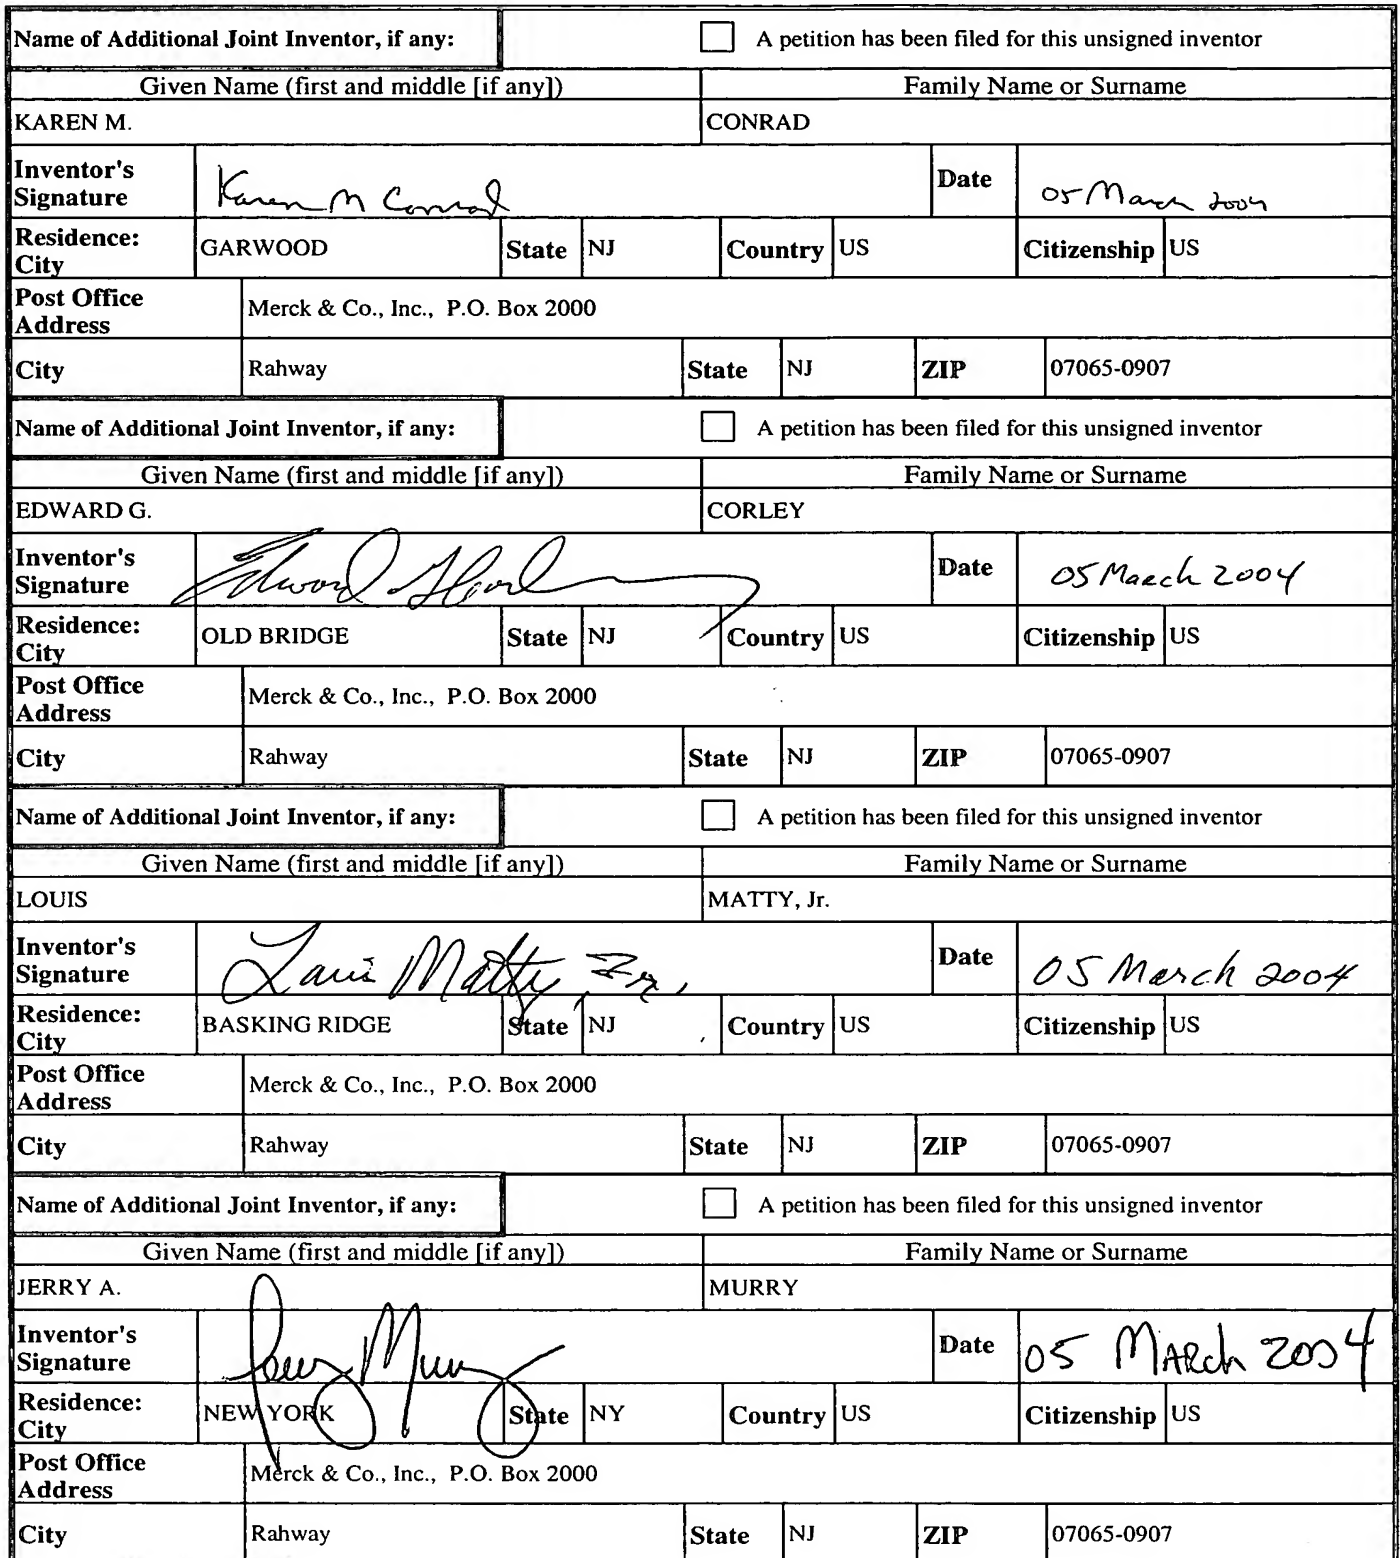 Name of Additional Joint Inventor, if any: A petition has been filed for this unsigned inventor
Given Name (first and middle [if any]) Family Name or Surname
KAREN M. CONRAD
Inventor's Signature Karen M Conrad Date 05 March 2004
Residence: City GARWOOD State NJ Country US Citizenship US
Post Office Address Merck & Co., Inc., P.O. Box 2000
City Rahway State NJ ZIP 07065-0907
Name of Additional Joint Inventor, if any: A petition has been filed for this unsigned inventor
Given Name (first and middle [if any]) Family Name or Surname
EDWARD G. CORLEY
Inventor's Signature Edward G Corley Date 05 March 2004
Residence: City OLD BRIDGE State NJ Country US Citizenship US
Post Office Address Merck & Co., Inc., P.O. Box 2000
City Rahway State NJ ZIP 07065-0907
Name of Additional Joint Inventor, if any: A petition has been filed for this unsigned inventor
Given Name (first and middle [if any]) Family Name or Surname
LOUIS MATTY, Jr.
Inventor's Signature Louis Matty, Jr. Date 05 March 2004
Residence: City BASKING RIDGE State NJ Country US Citizenship US
Post Office Address Merck & Co., Inc., P.O. Box 2000
City Rahway State NJ ZIP 07065-0907
Name of Additional Joint Inventor, if any: A petition has been filed for this unsigned inventor
Given Name (first and middle [if any]) Family Name or Surname
JERRY A. MURRY
Inventor's Signature Jerry Murry Date 05 MARch 2004
Residence: City NEW YORK State NY Country US Citizenship US
Post Office Address Merck & Co., Inc., P.O. Box 2000
City Rahway State NJ ZIP 07065-0907